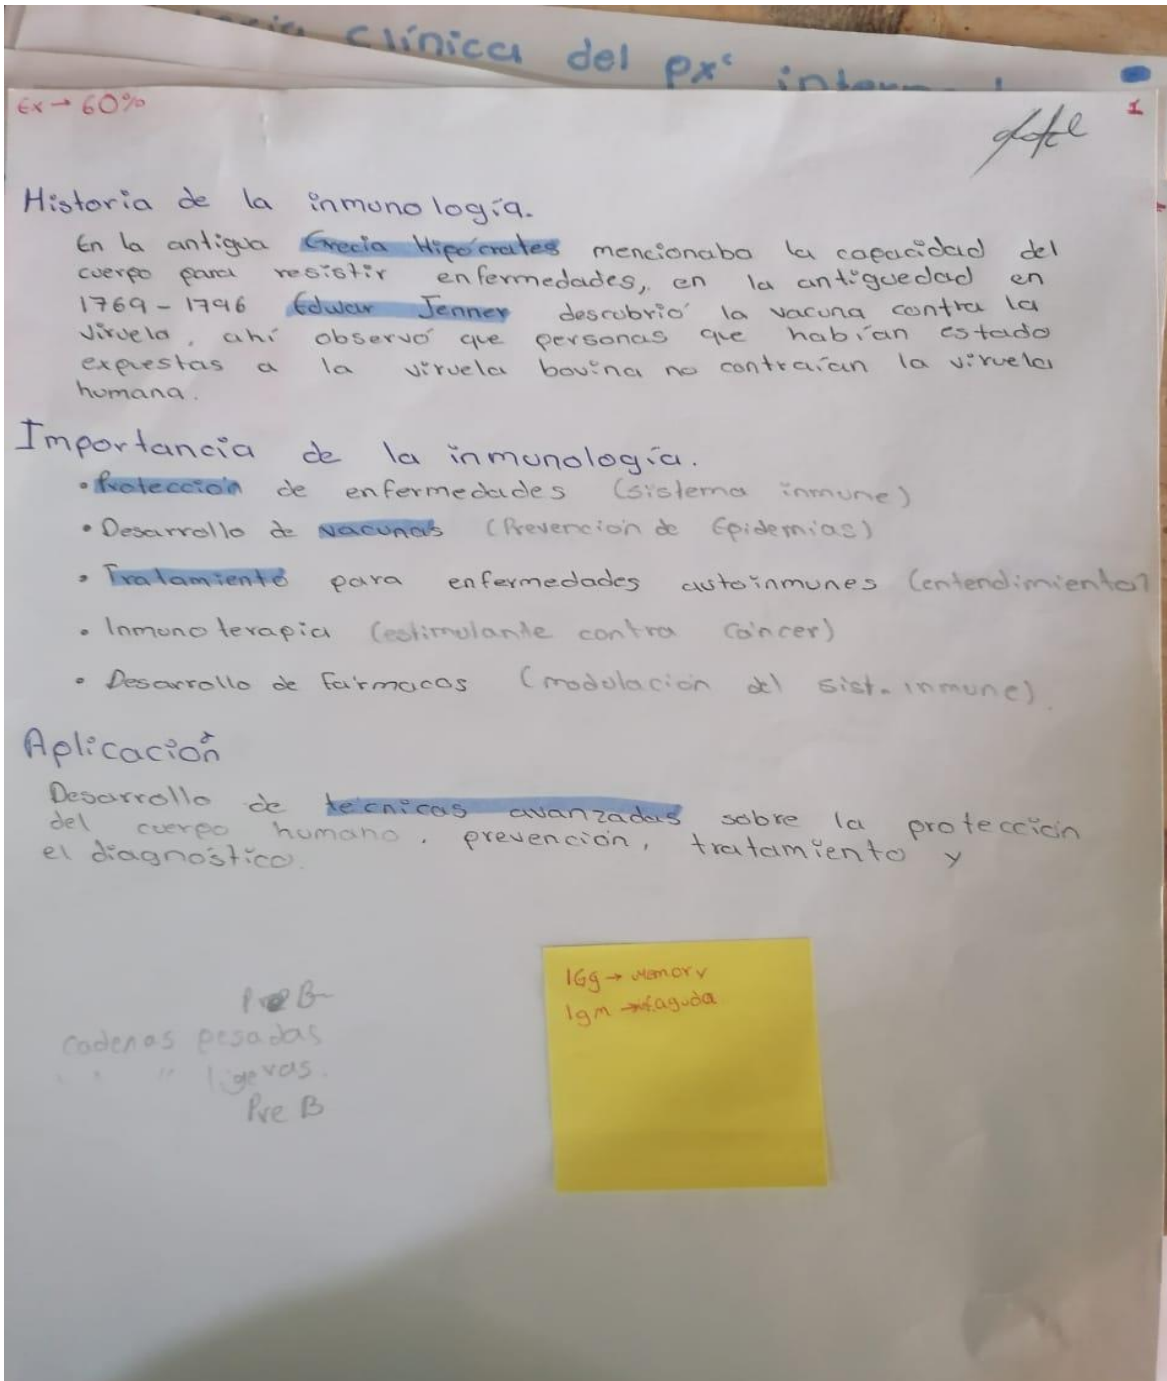 clínica del px
Ex → 60%
1
Historia de la inmunología.
En la antigua Grecia Hipócrates mencionaba la capacidad del
cuerpo para resistir enfermedades, en la antiguedad en
1769 - 1796 Edwar Jenner descubrió la vacuna contra la
viruela, ahí observó que personas que habían estado
expuestas a la viruela bovina no contraían la viruela
humana.
Importancia de la inmunología.
• Protección de enfermedades (sistema inmune)
• Desarrollo de vacunas (Prevención de Epidemias)
• Tratamiento para enfermedades autoinmunes (entendimiento)
• Inmunoterapia (estimulante contra cáncer)
• Desarrollo de fármacos (modulación del sist. inmune).
Aplicación
Desarrollo de técnicas avanzadas sobre la protección
del cuerpo humano, prevención, tratamiento y
el diagnóstico.
IGg → Memory
Igm → faguda
B
cadenas pesadas
" " ligeras.
Pre B